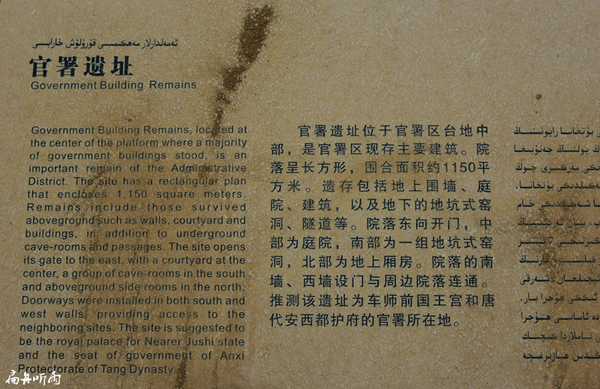 ئەمەلدارلار مەھكىمىسى قۇرۇلۇش خارابىسى
官署遗址
Government Building Remains
Government Building Remains, located at
the center of the platform where a majority
of government buildings stood, is an
important remain of the Administrative
District. The site has a rectangular plan
that encloses 1,150 square meters.
Remains include those survived
aboveground such as walls, courtyard and
buildings, in addition to underground
cave-rooms and passages. The site opens
its gate to the east, with a courtyard at the
center, a group of cave-rooms in the south
and aboveground side rooms in the north.
Doorways were installed in both south and
west walls, providing access to the
neighboring sites. The site is suggested to
be the royal palace for Nearer Jushi state
and the seat of government of Anxi
Protectorate of Tang Dynasty.
官署遗址位于官署区台地中
部，是官署区现存主要建筑。院
落呈长方形，围合面积约1150平
方米。遗存包括地上围墙、庭
院、建筑，以及地下的地坑式窑
洞、隧道等。院落东向开门，中
部为庭院，南部为一组地坑式窑
洞，北部为地上厢房。院落的南
墙、西墙设门与周边院落连通。
推测该遗址为车师前国王宫和唐
代安西都护府的官署所在地。
扁舟听雨